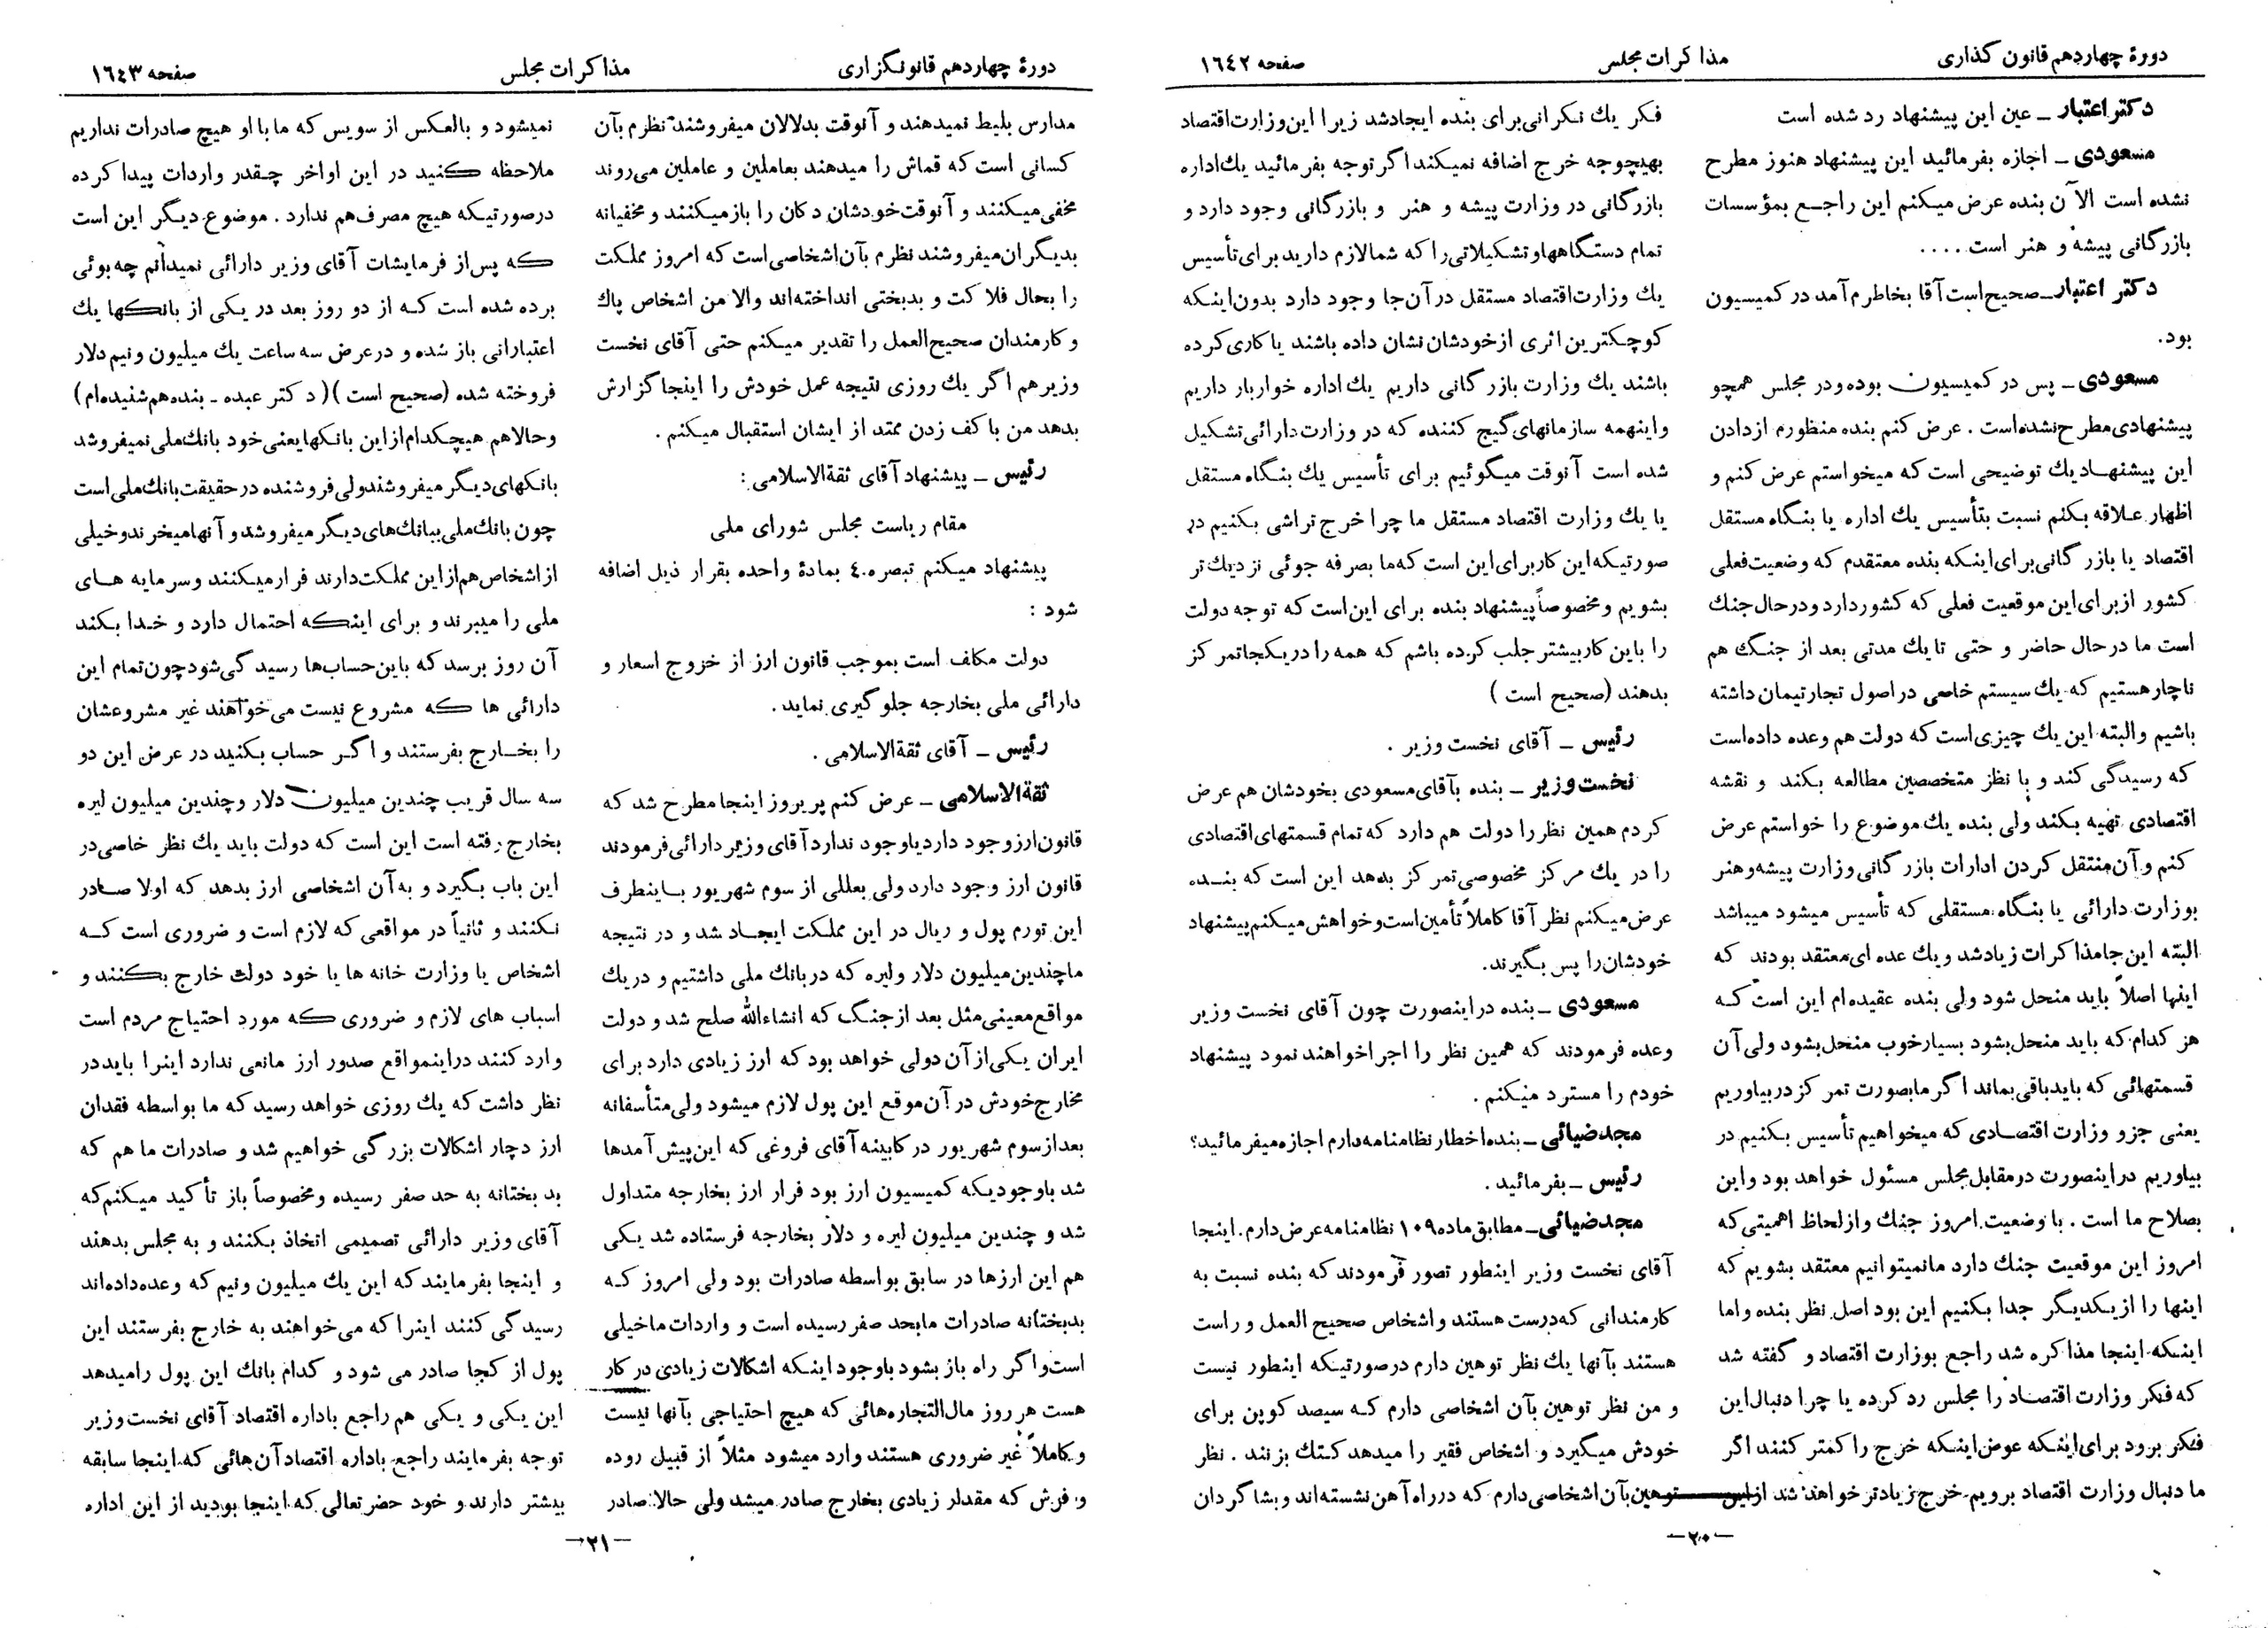 دورهٔ چهاردهم قانون گذاری
مذاکرات مجلس
صفحه ۱٦٤۲
دکتر اعتبار ــ عین این پیشنهاد رد شده است
مسعودی ــ اجازه بفرمائید این پیشنهاد هنوز مطرح
نشده است الآن بنده عرض میکنم این راجع بمؤسسات
بازرگانی پیشه و هنر است.....
دکتر اعتبار ــ صحیح است آقا بخاطرم آمد در کمیسیون
بود.
مسعودی ــ پس در کمیسیون بوده و در مجلس همچو
پیشنهادی مطرح نشده است . عرض کنم بنده منظورم ازدادن
این پیشنهاد یك توضیحی است که میخواستم عرض کنم و
اظهار علاقه بکنم نسبت بتأسیس یك اداره یا بنگاه مستقل
اقتصاد یا بازرگانی برای اینکه بنده معتقدم که وضعیت فعلی
کشور ازبرای این موقعیت فعلی که کشور دارد و درحال جنك
است ما درحال حاضر و حتی تا یك مدتی بعد از جنگ هم
ناچار هستیم که یك سیستم خاصی در اصول تجارتیمان داشته
باشیم والبته این یك چیزی است که دولت هم وعده داده است
که رسیدگی کند و با نظر متخصصین مطالعه بکند و نقشه
اقتصادی تهیه بکند ولی بنده یك موضوع را خواستم عرض
کنم و آن منتقل کردن ادارات بازرگانی وزارت پیشه و هنر
بوزارت دارائی یا بنگاه مستقلی که تأسیس میشود میباشد
البته این جا مذاکرات زیاد شد و یك عده ای معتقد بودند که
اینها اصلاً باید منحل شود ولی بنده عقیده ام این است که
هر کدام که باید منحل بشود بسیار خوب منحل بشود ولی آن
قسمتهائی که باید باقی بماند اگر ما بصورت تمرکز دربیاوریم
یعنی جزو وزارت اقتصادی که میخواهیم تأسیس بکنیم در
بیاوریم دراینصورت در مقابل مجلس مسئول خواهد بود و این
بصلاح ما است . با وضعیت امروز جنك و از لحاظ اهمیتی که
امروز این موقعیت جنك دارد ما نمیتوانیم معتقد بشویم که
اینها را از یکدیگر جدا بکنیم این بود اصل نظر بنده و اما
اینکه اینجا مذاکره شد راجع بوزارت اقتصاد و گفته شد
که فکر وزارت اقتصاد را مجلس رد کرده یا چرا دنبال این
فکر برود برای اینکه عوض اینکه خرج را کمتر کنند اگر
ما دنبال وزارت اقتصاد برویم خرج زیادتر خواهد شد از این
فکر یك نگرانی برای بنده ایجاد شد زیرا این وزارت اقتصاد
بهیچوجه خرج اضافه نمیکند اگر توجه بفرمائید یك اداره
بازرگانی در وزارت پیشه و هنر و بازرگانی وجود دارد و
تمام دستگاهها و تشکیلاتی را که شما لازم دارید برای تأسیس
یك وزارت اقتصاد مستقل در آن جا وجود دارد بدون اینکه
کوچکترین اثری از خودشان نشان داده باشند یا کاری کرده
باشند یك وزارت بازرگانی داریم یك اداره خواربار داریم
و اینهمه سازمانهای گیج کننده که در وزارت دارائی تشکیل
شده است آنوقت میگوئیم برای تأسیس یك بنگاه مستقل
یا یك وزارت اقتصاد مستقل ما چرا خرج تراشی بکنیم در
صورتیکه این کار برای این است که ما بصرفه جوئی نزدیك تر
بشویم و مخصوصاً پیشنهاد بنده برای این است که توجه دولت
را باین کار بیشتر جلب کرده باشم که همه را در یکجا تمرکز
بدهند (صحیح است )
رئیس ــ آقای نخست وزیر .
نخست وزیر ــ بنده بآقای مسعودی بخودشان هم عرض
کردم همین نظر را دولت هم دارد که تمام قسمتهای اقتصادی
را در یك مرکز مخصوصی تمرکز بدهد این است که بنده
عرض میکنم نظر آقا کاملاً تأمین است و خواهش میکنم پیشنهاد
خودشان را پس بگیرند.
مسعودی ــ بنده دراینصورت چون آقای نخست وزیر
وعده فرمودند که همین نظر را اجرا خواهند نمود پیشنهاد
خودم را مسترد میکنم .
مجد ضیائی ــ بنده اخطار نظامنامه دارم اجازه میفرمائید؟
رئیس ــ بفرمائید .
مجد ضیائی ــ مطابق ماده ۱۰۹ نظامنامه عرض دارم. اینجا
آقای نخست وزیر اینطور تصور فرمودند که بنده نسبت به
کارمندانی که درست هستند و اشخاص صحیح العمل و راست
هستند بآنها یك نظر توهین دارم درصورتیکه اینطور نیست
و من نظر توهین بآن اشخاصی دارم که سیصد کوپن برای
خودش میگیرد و اشخاص فقیر را میدهد کتك بزنند . نظر
توهین بآن اشخاصی دارم که در راه آهن نشسته اند و بشاگردان
ــ۲۰ــ
دورهٔ چهاردهم قانونگزاری
مذاکرات مجلس
صفحه ۱٦٤۳
مدارس بلیط نمیدهند و آنوقت بدلالان میفروشند نظرم بآن
کسانی است که قماش را میدهند بعاملین و عاملین می روند
مخفی میکنند و آنوقت خودشان دکان را باز میکنند و مخفیانه
بدیگران میفروشند نظرم بآن اشخاصی است که امروز مملکت
را بحال فلاکت و بدبختی انداخته اند والا من اشخاص پاك
و کارمندان صحیح العمل را تقدیر میکنم حتی آقای نخست
وزیر هم اگر یك روزی نتیجه عمل خودش را اینجا گزارش
بدهد من با کف زدن ممتد از ایشان استقبال میکنم .
رئیس ــ پیشنهاد آقای ثقةالاسلامی :
مقام ریاست مجلس شورای ملی
پیشنهاد میکنم تبصره ٤ بمادهٔ واحده بقرار ذیل اضافه
شود :
دولت مکلف است بموجب قانون ارز از خروج اسعار و
دارائی ملی بخارجه جلوگیری نماید .
رئیس ــ آقای ثقةالاسلامی .
ثقةالاسلامی ــ عرض کنم پریروز اینجا مطرح شد که
قانون ارز وجود دارد یا وجود ندارد آقای وزیر دارائی فرمودند
قانون ارز وجود دارد ولی بعللی از سوم شهریور باینطرف
این تورم پول و ریال در این مملکت ایجاد شد و در نتیجه
ما چندین میلیون دلار و لیره که در بانك ملی داشتیم و در یك
مواقع معینی مثل بعد از جنگ که انشاءالله صلح شد و دولت
ایران یکی از آن دولی خواهد بود که ارز زیادی دارد برای
مخارج خودش در آن موقع این پول لازم میشود ولی متأسفانه
بعد از سوم شهریور در کابینه آقای فروغی که این پیش آمدها
شد باوجودیکه کمیسیون ارز بود فرار ارز بخارجه متداول
شد و چندین میلیون لیره و دلار بخارجه فرستاده شد یکی
هم این ارزها در سابق بواسطه صادرات بود ولی امروز که
بدبختانه صادرات ما بحد صفر رسیده است و واردات ما خیلی
است و اگر راه باز بشود باوجود اینکه اشکالات زیادی در کار
هست هر روز مال التجاره هائی که هیچ احتیاجی بآنها نیست
و کاملاً غیر ضروری هستند وارد میشود مثلاً از قبیل روده
و فرش که مقدار زیادی بخارج صادر میشد ولی حالا صادر
نمیشود و بالعکس از سویس که ما با او هیچ صادرات نداریم
ملاحظه کنید در این اواخر چقدر واردات پیدا کرده
درصورتیکه هیچ مصرف هم ندارد . موضوع دیگر این است
که پس از فرمایشات آقای وزیر دارائی نمیدانم چه بوئی
برده شده است که از دو روز بعد در یکی از بانکها یك
اعتباراتی باز شده و در عرض سه ساعت یك میلیون و نیم دلار
فروخته شده (صحیح است )( دکتر عبده ـ بنده هم شنیده ام )
و حالا هم هیچکدام از این بانکها یعنی خود بانك ملی نمیفروشد
بانکهای دیگر میفروشند ولی فروشنده در حقیقت بانك ملی است
چون بانك ملی ببانك های دیگر میفروشد و آنها میخرند و خیلی
از اشخاص هم از این مملکت دارند فرار میکنند و سرمایه های
ملی را میبرند و برای اینکه احتمال دارد و خدا بکند
آن روز برسد که باین حساب ها رسیدگی شود چون تمام این
دارائی ها که مشروع نیست می خواهند غیر مشروعشان
را بخارج بفرستند و اگر حساب بکنید در عرض این دو
سه سال قریب چندین میلیون دلار و چندین میلیون لیره
بخارج رفته است این است که دولت باید یك نظر خاصی در
این باب بگیرد و به آن اشخاصی ارز بدهد که اولا صادر
نکنند و ثانیاً در مواقعی که لازم است و ضروری است که
اشخاص یا وزارت خانه ها یا خود دولت خارج بکنند و
اسباب های لازم و ضروری که مورد احتیاج مردم است
وارد کنند دراینمواقع صدور ارز مانعی ندارد اینرا باید در
نظر داشت که یك روزی خواهد رسید که ما بواسطه فقدان
ارز دچار اشکالات بزرگی خواهیم شد و صادرات ما هم که
بدبختانه به حد صفر رسیده و مخصوصاً باز تأکید میکنم که
آقای وزیر دارائی تصمیمی اتخاذ بکنند و به مجلس بدهند
و اینجا بفرمایند که این یك میلیون و نیم که وعده داده اند
رسیدگی کنند اینرا که می خواهند به خارج بفرستند این
پول از کجا صادر می شود و کدام بانك این پول را میدهد
این یکی و یکی هم راجع باداره اقتصاد آقای نخست وزیر
توجه بفرمایند راجع باداره اقتصاد آن هائی که اینجا سابقه
بیشتر دارند و خود حضرتعالی که اینجا بودید از این اداره
ــ۲۱ــ